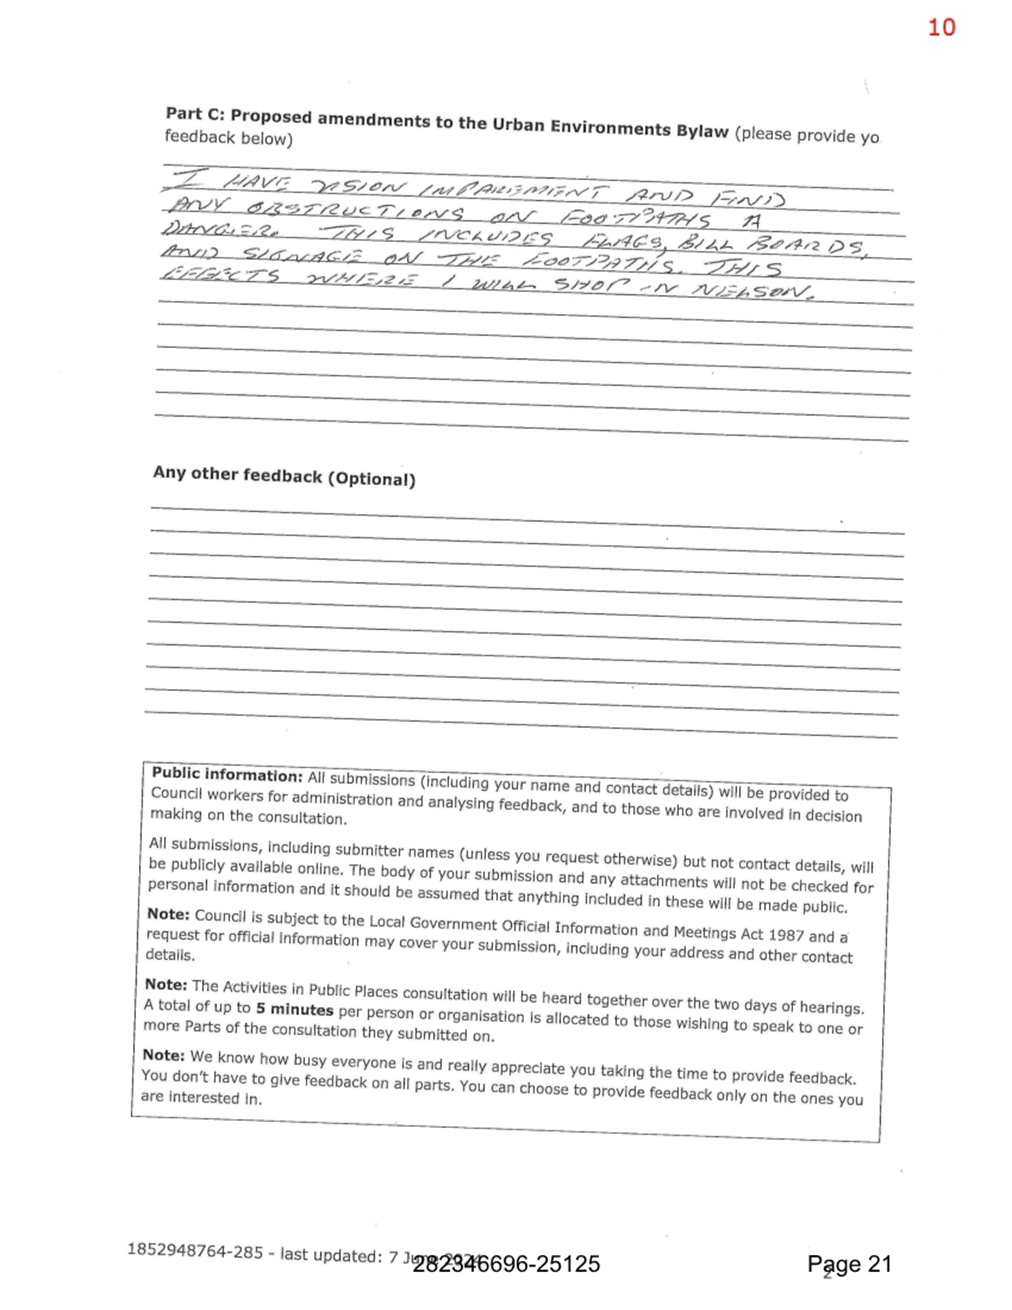 10
Part C: Proposed amendments to the Urban Environments Bylaw (please provide yo
feedback below)
I HAVE VISION IMPAREMENT AND FIND
ANY OBSTRUCTIONS ON FOOTPATHS A
DANGER. THIS INCLUDES FLAGS, BILL BOARDS,
AND SIGNAGE ON THE FOOTPATHS. THIS
EFFECTS WHERE I WILL SHOP IN NELSON.
Any other feedback (Optional)
Public information: All submissions (including your name and contact details) will be provided to
Council workers for administration and analysing feedback, and to those who are involved in decision
making on the consultation.
All submissions, including submitter names (unless you request otherwise) but not contact details, will
be publicly available online. The body of your submission and any attachments will not be checked for
personal information and it should be assumed that anything included in these will be made public.
Note: Council is subject to the Local Government Official Information and Meetings Act 1987 and a
request for official information may cover your submission, including your address and other contact
details.
Note: The Activities in Public Places consultation will be heard together over the two days of hearings.
A total of up to 5 minutes per person or organisation is allocated to those wishing to speak to one or
more Parts of the consultation they submitted on.
Note: We know how busy everyone is and really appreciate you taking the time to provide feedback.
You don't have to give feedback on all parts. You can choose to provide feedback only on the ones you
are interested in.
1852948764-285 - last updated: 7 June 2024
282346696-25125
Page 21
2